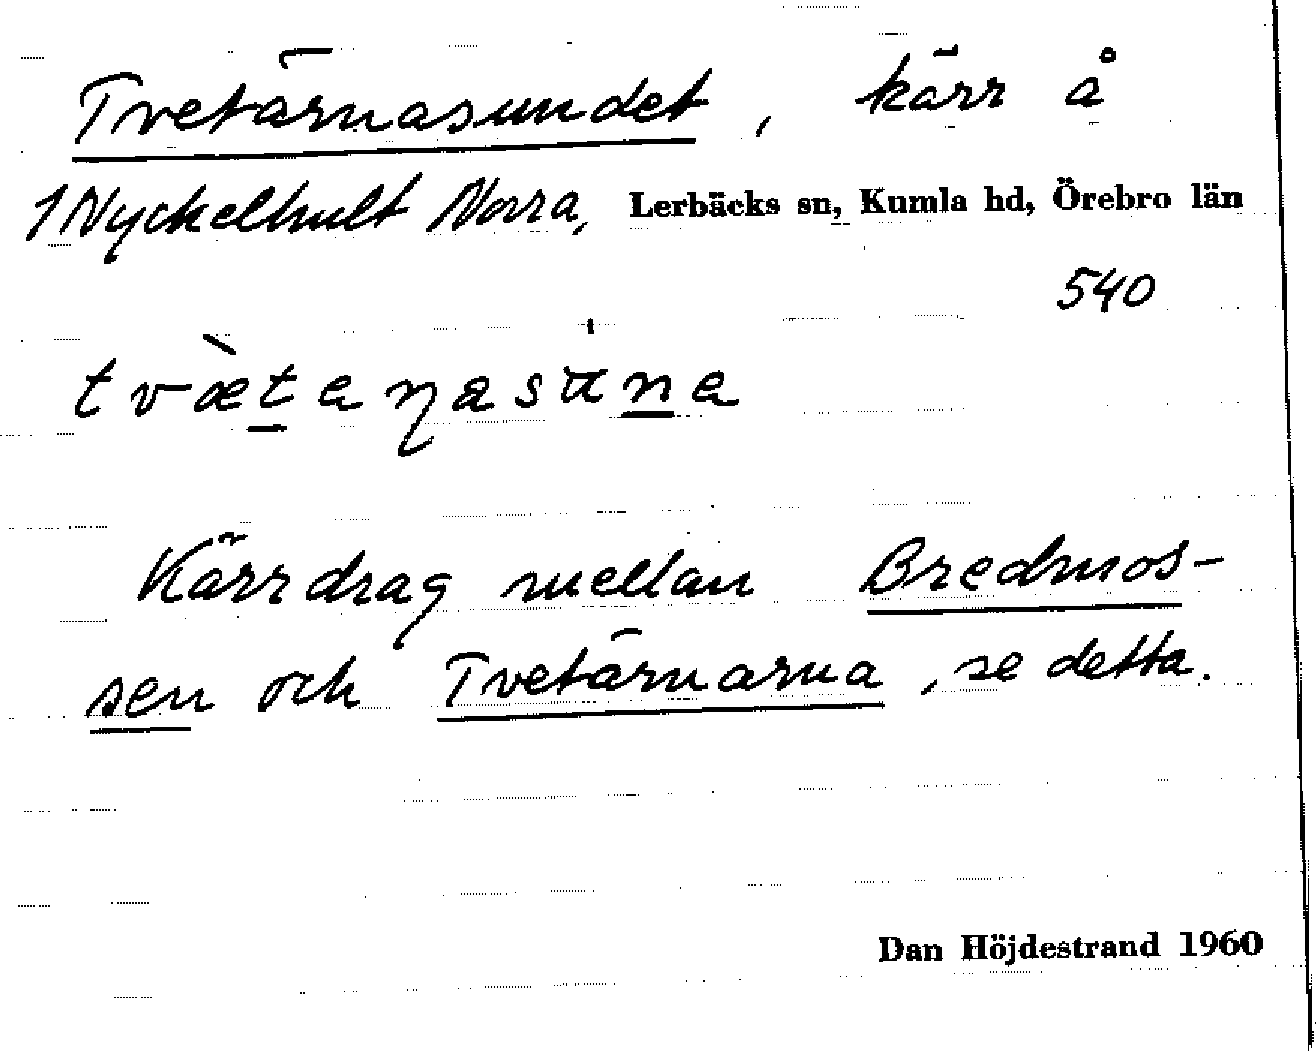 Tvetärnasundet, kärr å
1 Nyckelhult Norra, Lerbäcks sn, Kumla hd, Örebro län
540
Kärrdrag mellan Bredmos-
sen och Tvetärnarna, se detta.
Dan Höjdestrand 1960